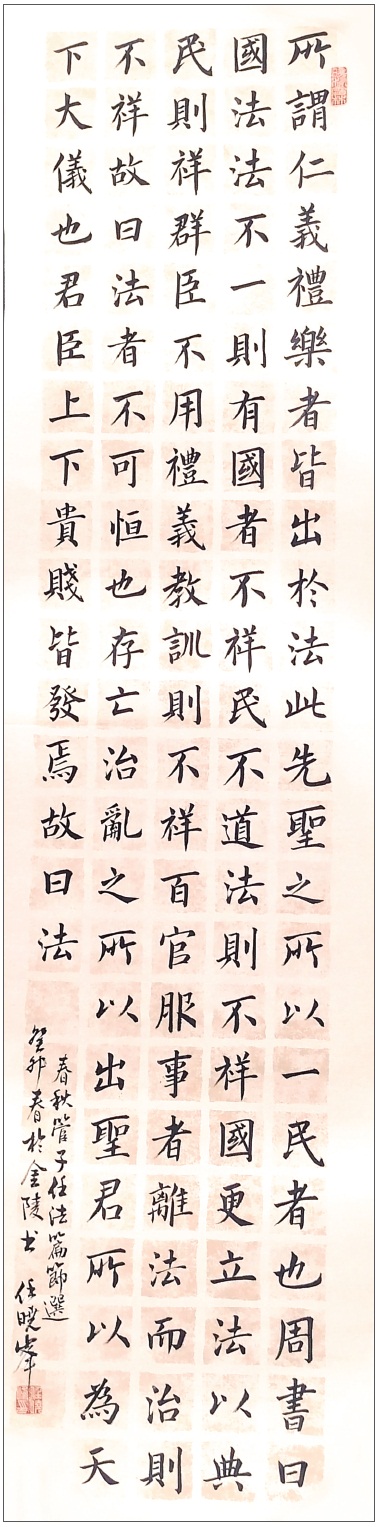 所謂仁義禮樂者皆出於法此先聖之所以一民者也周書曰
國法法不一則有國者不祥民不道法則不祥國更立法以典
民則祥群臣不用禮義教訓則不祥百官服事者離法而治則
不祥故曰法者不可恒也存亡治亂之所以出聖君所以為天
下大儀也君臣上下貴賤皆發焉故曰法
春秋管子任法篇節選
癸卯春於金陵書 任曉峯